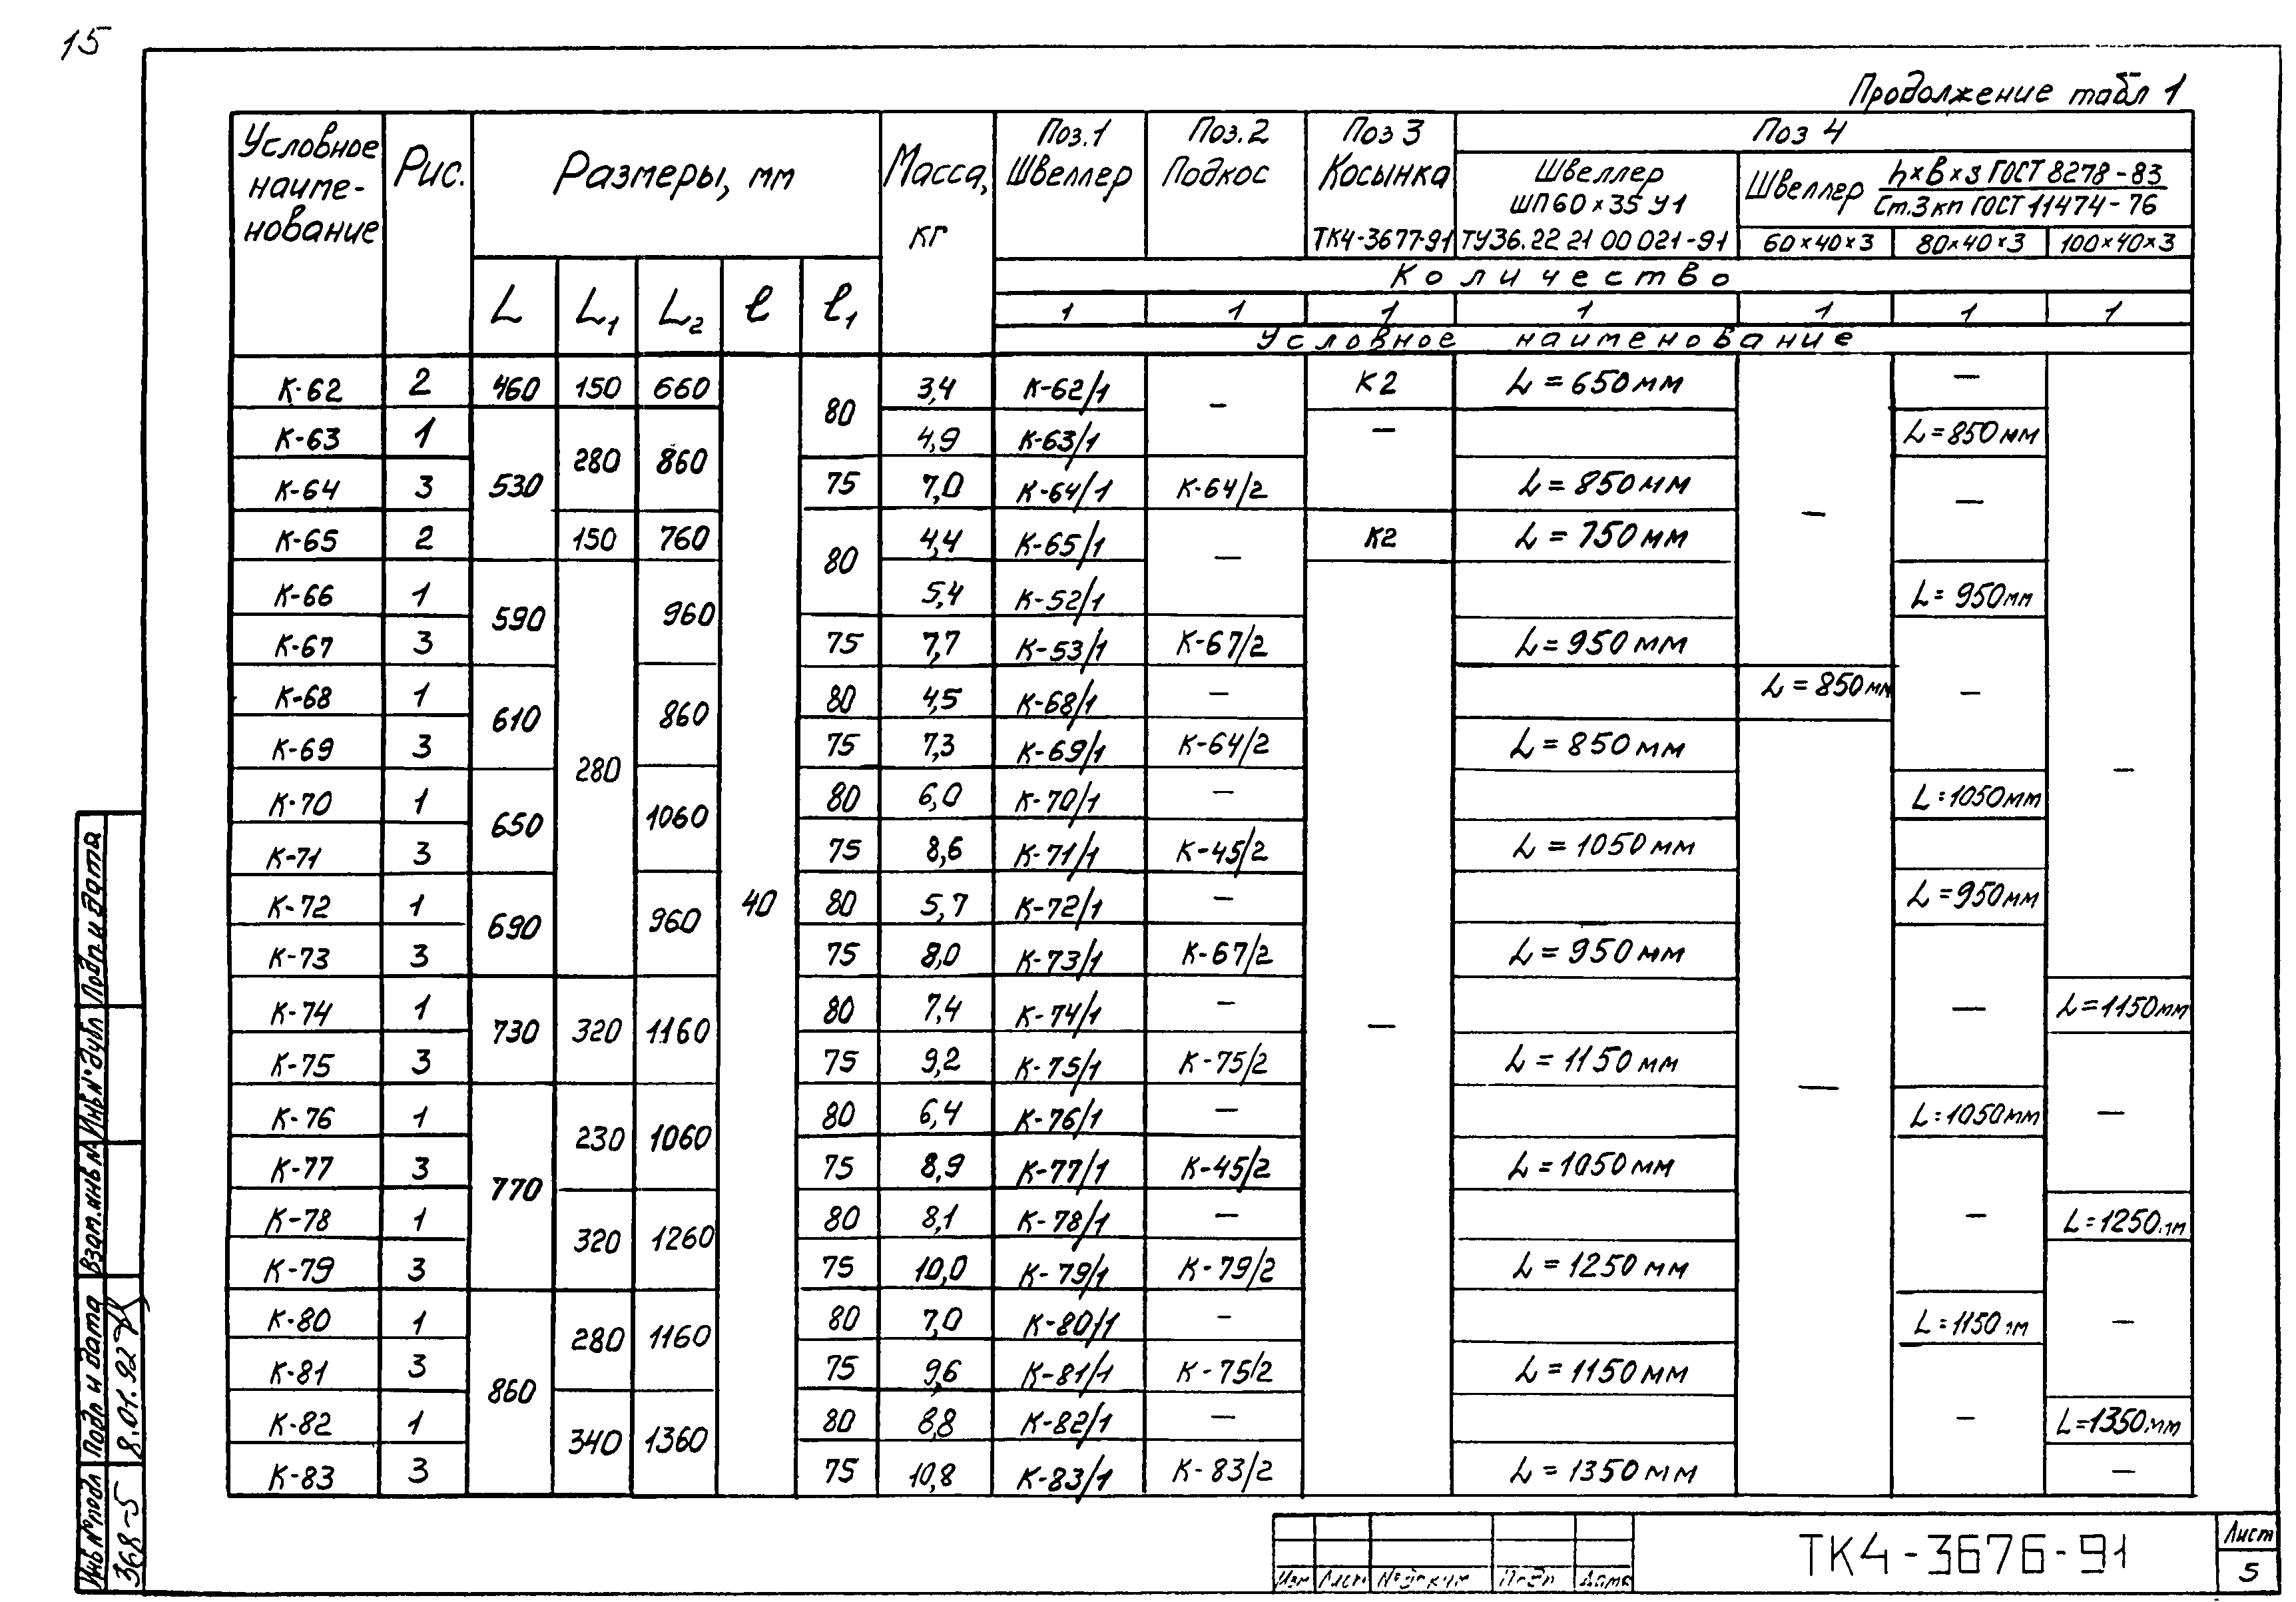 15
Продолжение табл 1
Условное наиме-нование | Рис. | Размеры, мм | Масса, кг | Поз.1 Швеллер | Поз.2 Подкос | Поз 3 Косынка ТК4-3677-91 | Поз 4
Швеллер ШП60×35 У1 ТУ36.22 21 00 021-91 | Швеллер h×в×s ГОСТ 8278-83 / Ст.3кп ГОСТ 11474-76
60×40×3 | 80×40×3 | 100×40×3
L | L1 | L2 | ℓ | ℓ1
Количество
1 | 1 | 1 | 1 | 1 | 1 | 1
Условное наименование
К-62 | 2 | 460 | 150 | 660 | 40 | 80 | 3,4 | К-62/1 | – | К2 | L=650мм | – | – | –
К-63 | 1 | 530 | 280 | 860 | 4,9 | К-63/1 | – | L=850мм
К-64 | 3 | 75 | 7,0 | К-64/1 | К-64/2 | L=850мм | –
К-65 | 2 | 150 | 760 | 80 | 4,4 | К-65/1 | – | К2 | L=750мм
К-66 | 1 | 590 | 280 | 960 | 5,4 | К-52/1 | – | L=950мм
К-67 | 3 | 75 | 7,7 | К-53/1 | К-67/2 | L=950мм | –
К-68 | 1 | 610 | 860 | 80 | 4,5 | К-68/1 | – | L=850мм
К-69 | 3 | 75 | 7,3 | К-69/1 | К-64/2 | L=850мм | –
К-70 | 1 | 650 | 1060 | 80 | 6,0 | К-70/1 | – | L=1050мм
К-71 | 3 | 75 | 8,6 | К-71/1 | К-45/2 | L=1050мм
К-72 | 1 | 690 | 960 | 80 | 5,7 | К-72/1 | – | L=950мм
К-73 | 3 | 75 | 8,0 | К-73/1 | К-67/2 | L=950мм | –
К-74 | 1 | 730 | 320 | 1160 | 80 | 7,4 | К-74/1 | – | L=1150мм
К-75 | 3 | 75 | 9,2 | К-75/1 | К-75/2 | L=1150мм | –
К-76 | 1 | 770 | 230 | 1060 | 80 | 6,4 | К-76/1 | – | L=1050мм
К-77 | 3 | 75 | 8,9 | К-77/1 | К-45/2 | L=1050мм | –
К-78 | 1 | 320 | 1260 | 80 | 8,1 | К-78/1 | – | L=1250мм
К-79 | 3 | 75 | 10,0 | К-79/1 | К-79/2 | L=1250мм
К-80 | 1 | 860 | 280 | 1160 | 80 | 7,0 | К-80/1 | – | L=1150мм | –
К-81 | 3 | 75 | 9,6 | К-81/1 | К-75/2 | L=1150мм | –
К-82 | 1 | 340 | 1360 | 80 | 8,8 | К-82/1 | – | L=1350мм
К-83 | 3 | 75 | 10,8 | К-83/1 | К-83/2 | L=1350мм | –
Подп. и дата
Инв № дубл
Взам. инв №
Подп и дата 8.01.92
Инв № подл 368-5
Изм Лист № докум Подп Дата
ТК4-3676-91
Лист
5